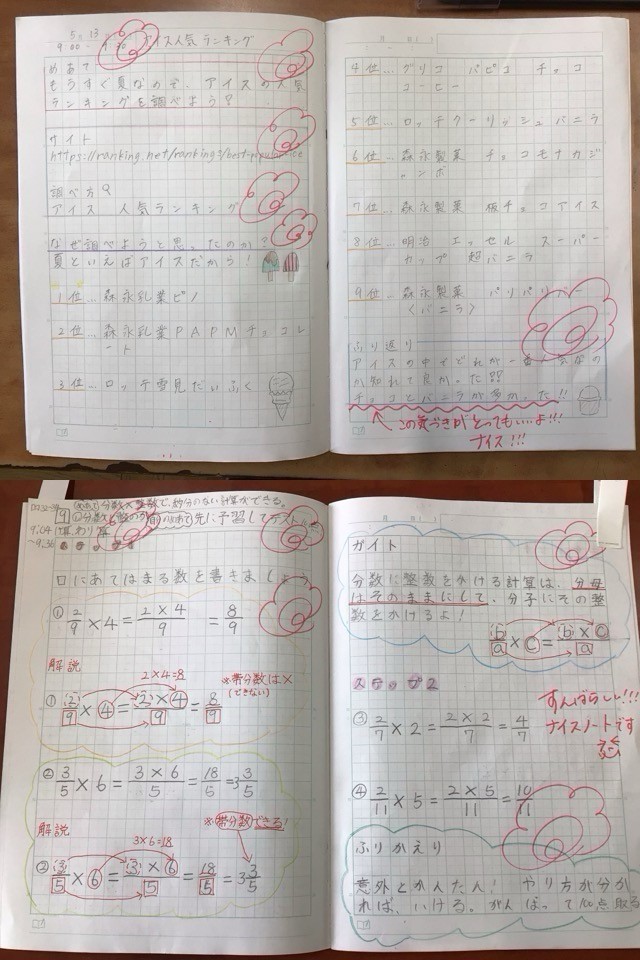 5 13 アイス人気ランキング
9:00
めあて
もうすぐ夏なので、アイスの人気
ランキングを調べよう?
サイト
調べ方?
アイス 人気ランキング
なぜ調べようと思ったのか?
夏といえばアイスだから!
1位…森永乳業ピノ
2位…森永乳業PAPMチョコレ
ート
3位…ロッテ雪見だいふく
4位…グリコ パピコ チョコ
コーヒー
5位…ロッテクーリッシュバニラ
6位…森永製菓 チョコモナカジ
ャンボ
7位…森永製菓 板チョコアイス
8位…明治 エッセル スーパー
カップ 超バニラ
9位…森永製菓 パリパリバー
〈バニラ〉
ふり返り
アイスの中でどれが一番人気なの
か知れて良かった!!
チョコとバニラが多かった!!
この気づきがとってもいいよ!!!
ナイス!!!
めあて 分数×整数で、約分のない計算ができる。
先に予習して
9:04
~9:36
□にあてはまる数を書きましょう
① 2/9×4=2×4/9=8/9
解説
2×4=8
① 2/9×4=2×4/9=8/9
※帯分数は×
(できない)
② 3/5×6=3×6/5=18/5=3 3/5
解説
3×6=18
※帯分数できる!
② 3/5×6=3×6/5=18/5=3 3/5
ガイト
分数に整数をかける計算は、分母
はそのままにして、分子にその整
数をかけるよ!
b/a×c=b×c/a
ステップ2
③ 2/7×2=2×2/7=4/7
④ 2/11×5=2×5/11=10/11
すんばらしい!!!
ナイスノートです
ふりかえり
意外とかんたん! やり方が分か
れば、いける。がんばって 点取る